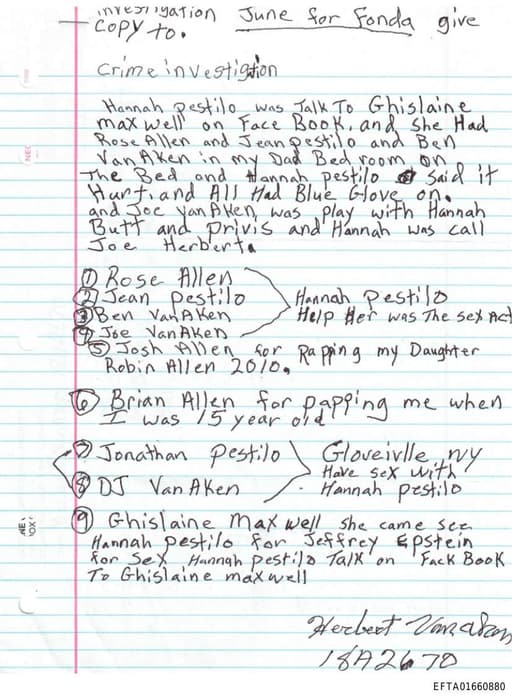 investigation June for Fonda give
copy to.
crime investigtion
Hannah pestilo was Talk To Ghislaine
maxwell on Face Book, and she Had
Rose Allen and Jean pestilo and Ben
VanAken in my Dad Bed room on
The Bed and Hannah pestilo said it
Hurt, and All Had Blue Glove on.
and Joe VanAken, was play with Hannah
Butt and privis and Hannah was call
Joe Herbert.
① Rose Allen
② Jean pestilo
③ Ben VanAken
④ Joe VanAken
Hannah pestilo
Help Her was The sex Act
⑤ Josh Allen for Rapping my Daughter
Robin Allen 2010.
⑥ Brian Allen for papping me when
I was 15 year old
⑦ Jonathan pestilo
⑧ DJ VanAken
Gloveivlle, NY
Have sex with
Hannah pestilo
⑨ Ghislaine maxwell she came see
Hannah pestilo for Jeffrey Epstein
for sex Hannah pestilo Talk on Fack Book
To Ghislaine maxwell
Herbert VanAken
18A2670
EFTA01660880